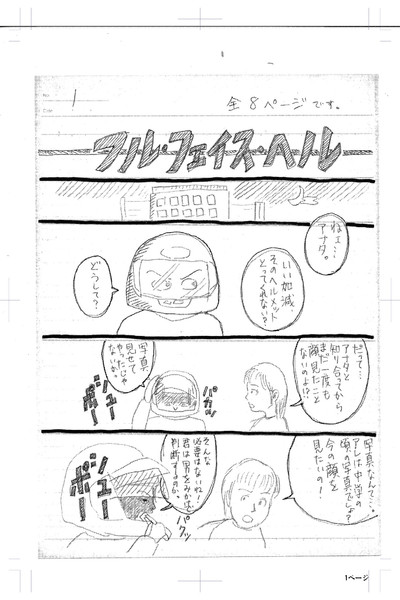 1
全8ページです。
フル・フェイス・ヘル
ねェ…
アナタ。
いい加減、
そのヘルメット
とってくれない?
どうして?
だって…
アナタと
知り合ってから
まだ一度も
顔見たこと
ないのよ!?
パカッ
写真
見せて
やったじゃ
ないか。
シュー
ボー
写真なんて…。
アレは中学の
頃の写真でしょ?
今の顔を
見たいの!
そんな
必要はないね!
君は男をみかけで
判断するのか。
パクッ
シュー
ボー
1ページ